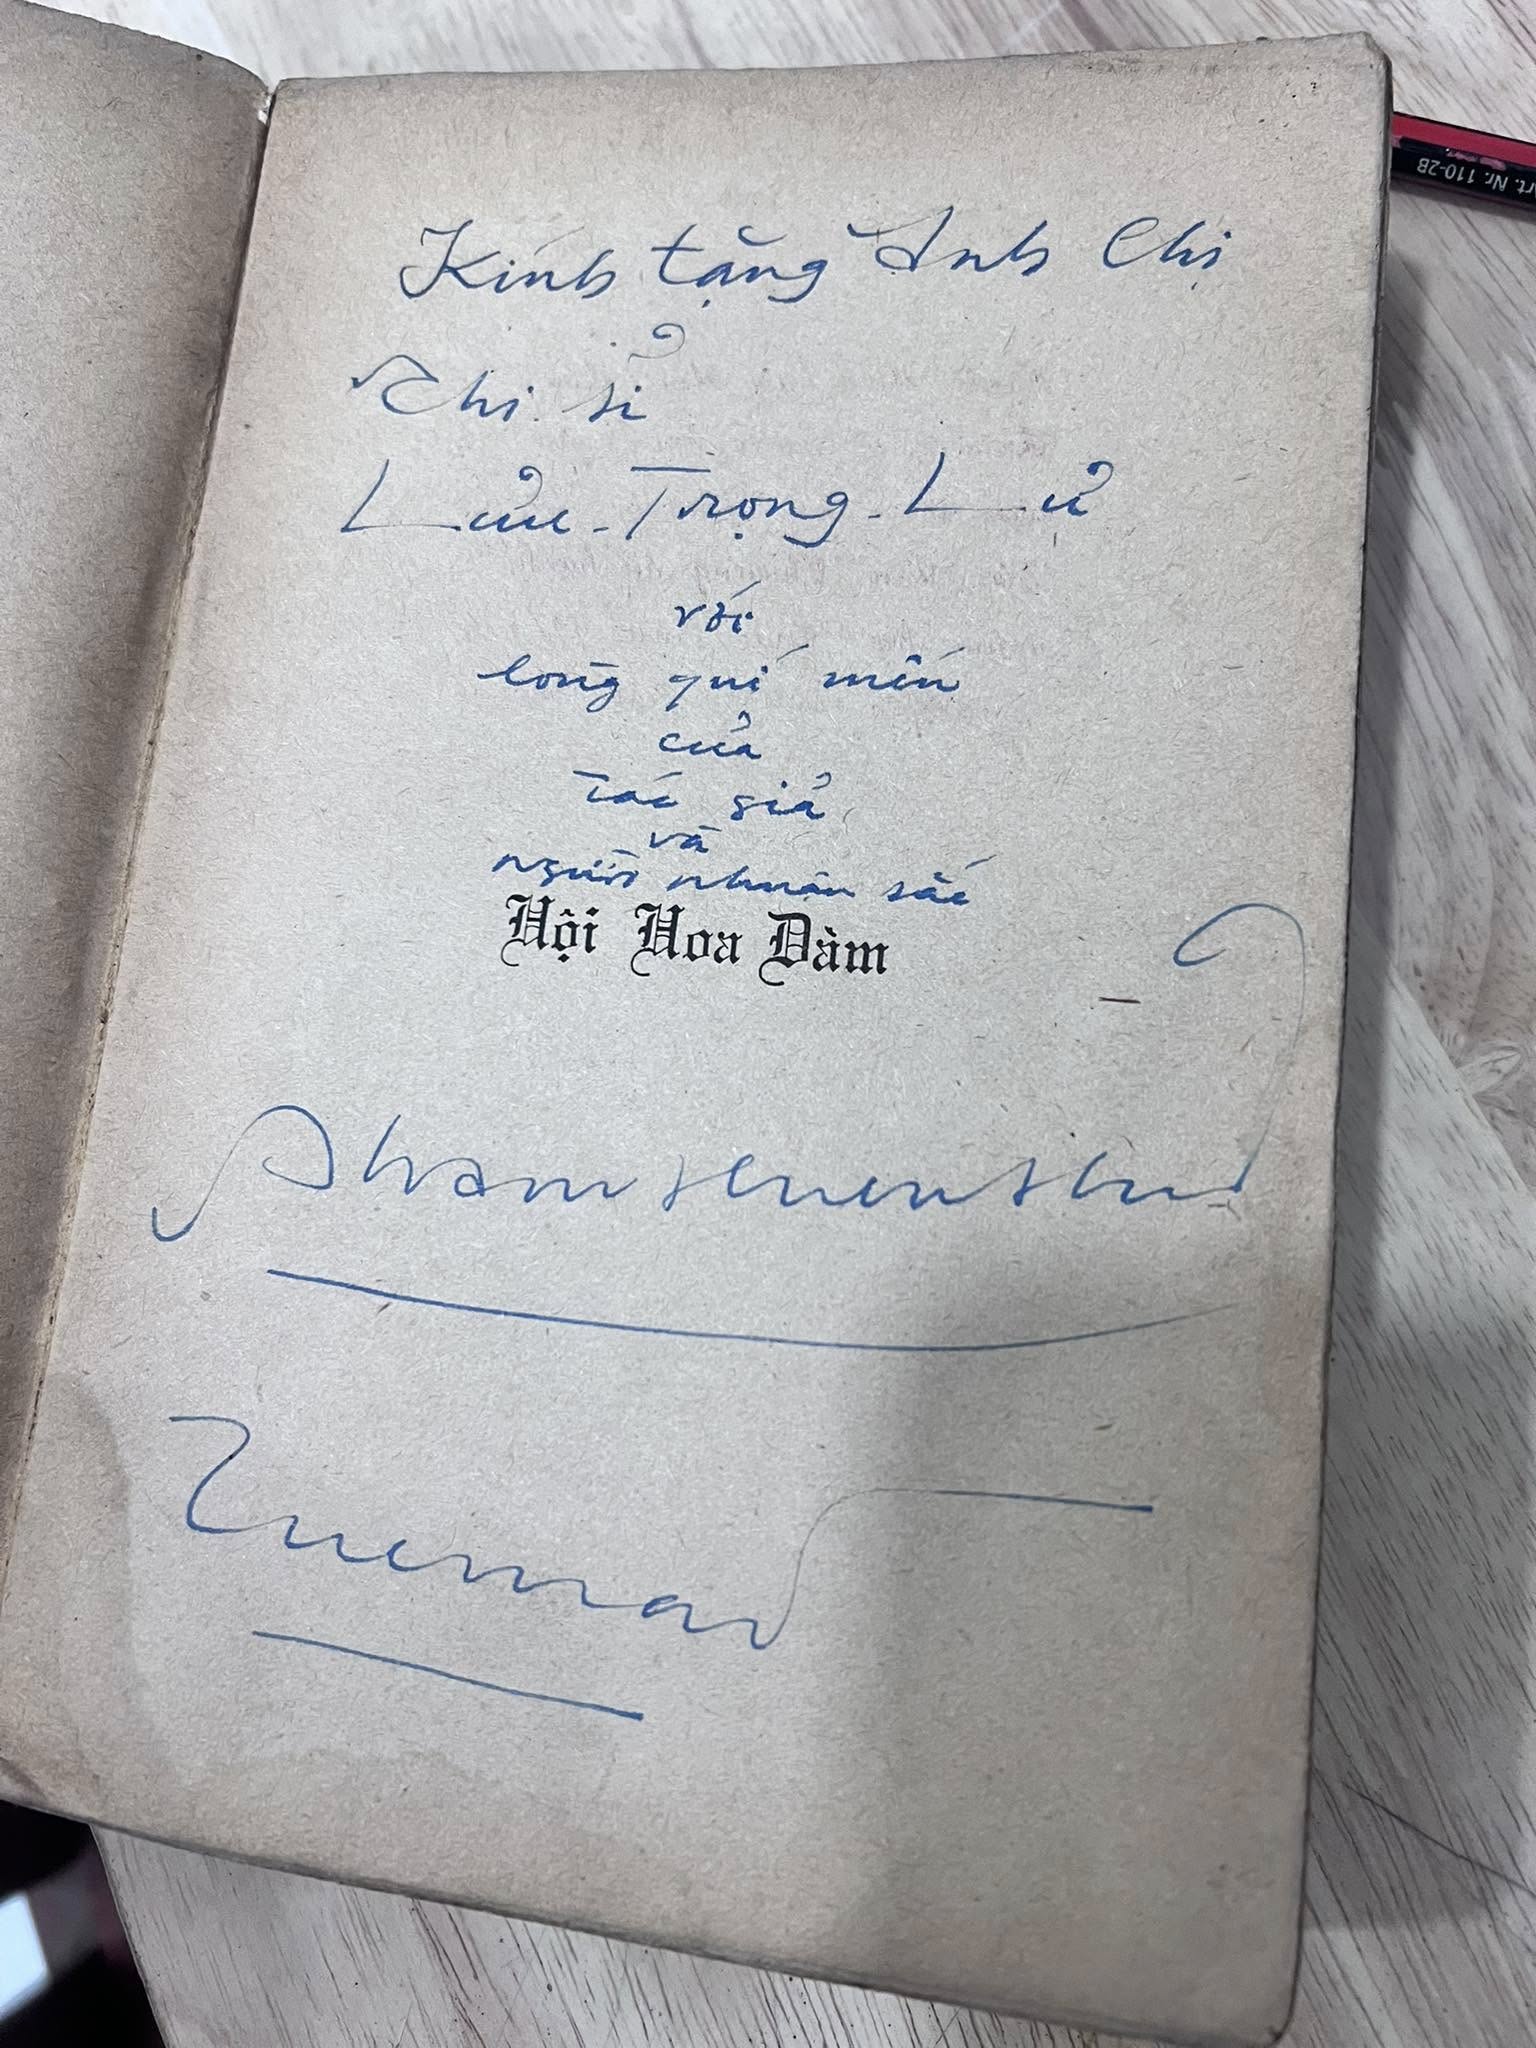 Kính tặng Anh Chị
Thi sỉ
Lưu-Trọng-Lư
với
lòng quí mến
của
tác giả
và
người nhuận sắc
Hội Hoa Đàm
Phạm Thiên Thư
Art. Nr. 110-2B